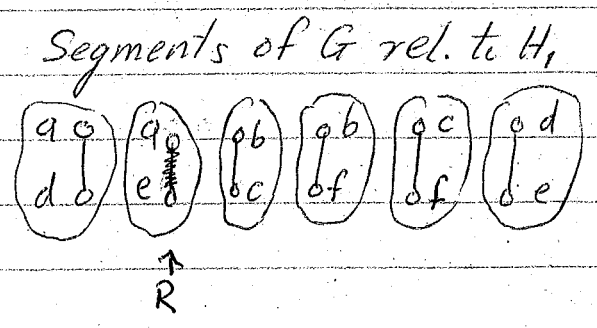 Segments of G rel. to H₁
a a b b c d
d e c f f e
R